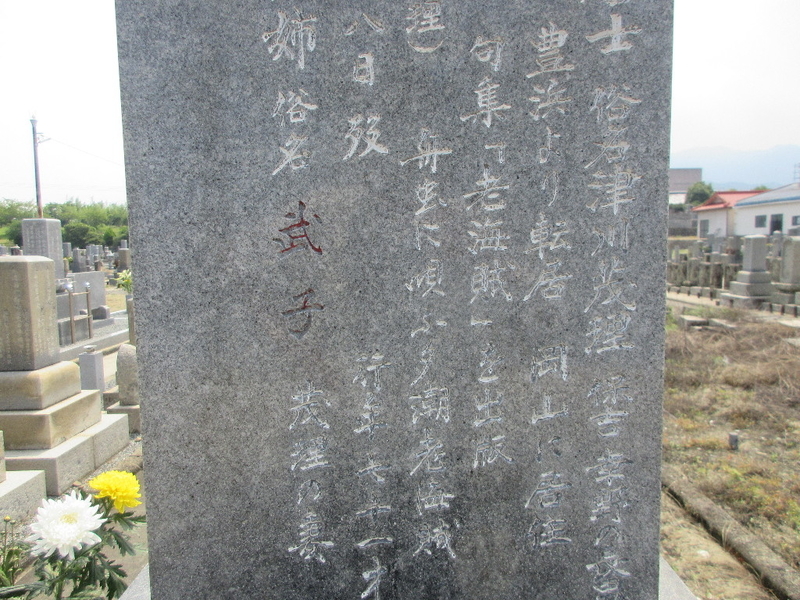 士 俗名津川茂理 幸野の
豊浜より転居 岡山に居住
句集「老海賊」を出版
理) 舟虫に唄ふ夕潮老海賊
八日 歿 行年七十一才
姉 俗名 武子 茂理の妻